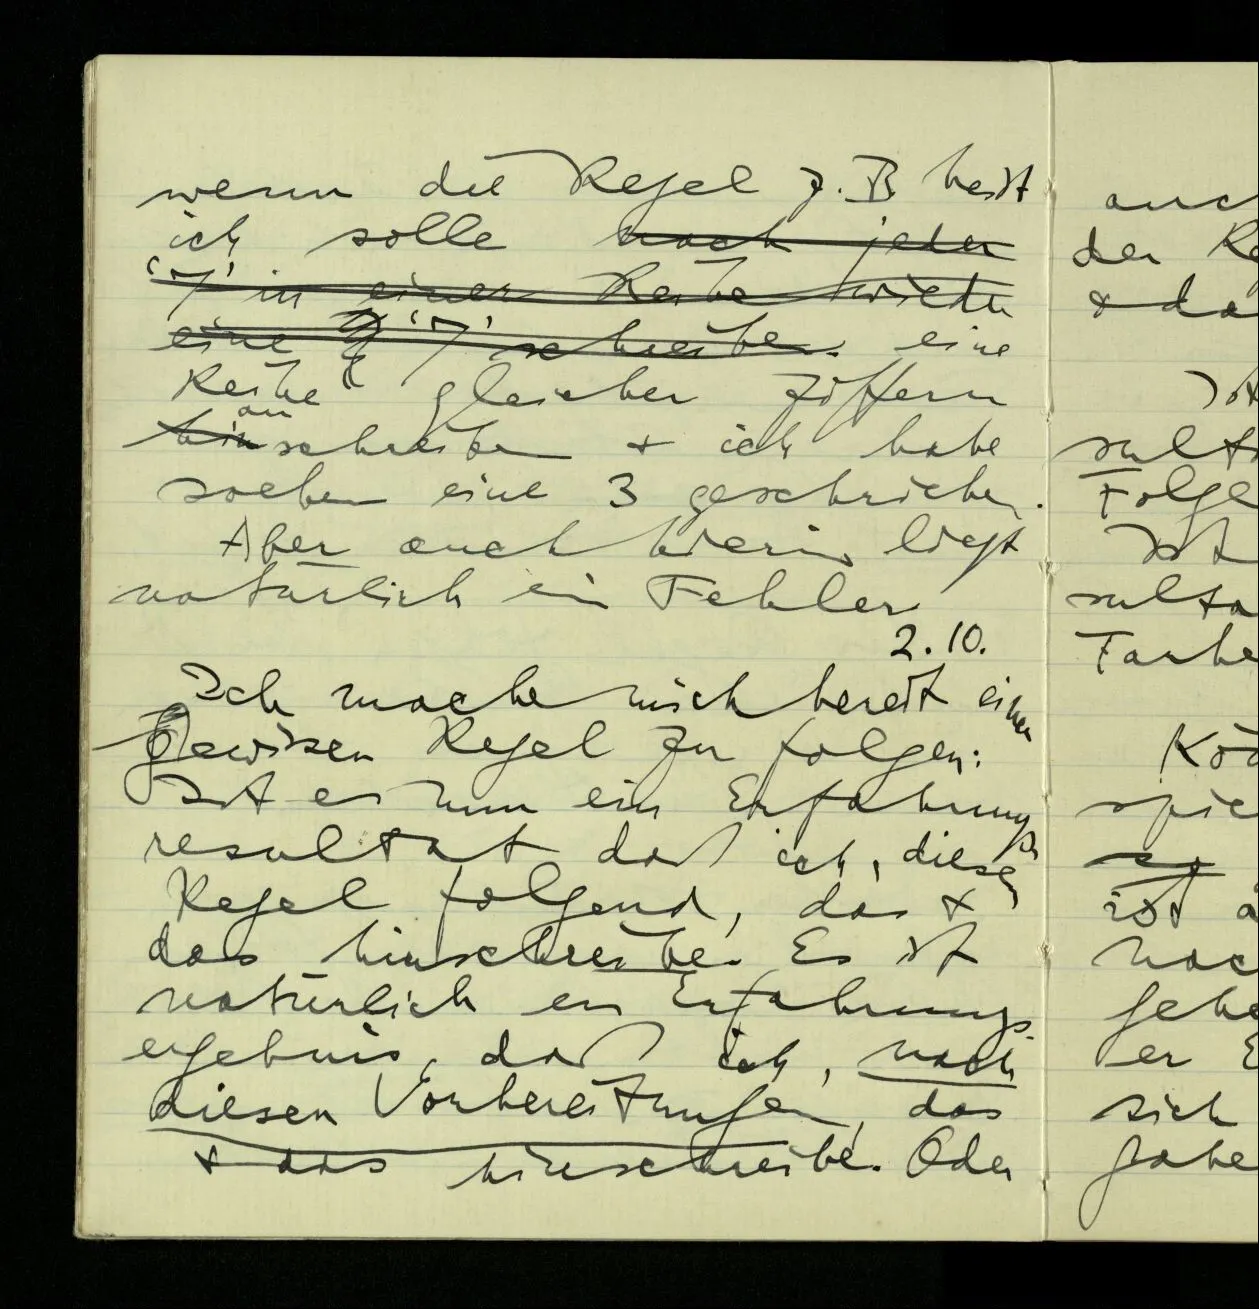 wenn die Regel z. B heißt
ich solle nach jeder
‘7’ in einer Reihe wieder
eine ‘7’ schreiben. eine
Reihe gleicher Ziffern
hin an
schreiben + ich habe
soeben eine 3 geschrieben.
Aber auch hierin liegt
natürlich ein Fehler
2.10.
Ich mache mich bereit einer
gewissen Regel zu folgen:
Ist es nun ein Erfahrungs
resultat daß ich, dieser
Regel folgend, das +
das hinschreibe. Es ist
natürlich ein Erfahrungs-
ergebnis, daß ich, nach
diesen Vorbereitungen, das
+ das hinschreibe. Oder
auch
der Re
+ da
Ist
sulta
Folge
Ist
sulta
Farbe
Kö
spie
so
ist a
nach
gebe
er E
sich
gabe